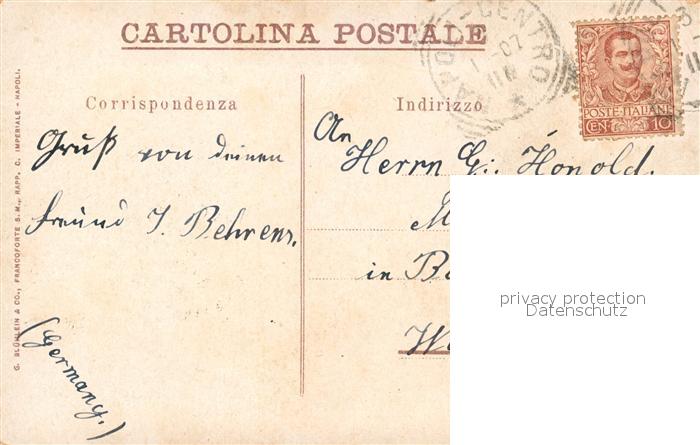 CARTOLINA POSTALE
NAPOLI CENTRO
1 - 07
POSTE ITALIANE
CEN 10
Corrispondenza
Gruß von deinem
Freund J. Behrens.
(Germany.)
Indirizzo
An
Herrn G. Honold.
M
in B
W
privacy protection
Datenschutz
G. BLÜMLEIN & CO., FRANCOFORTE S. M., RAPP. C. IMPERIALE - NAPOLI.